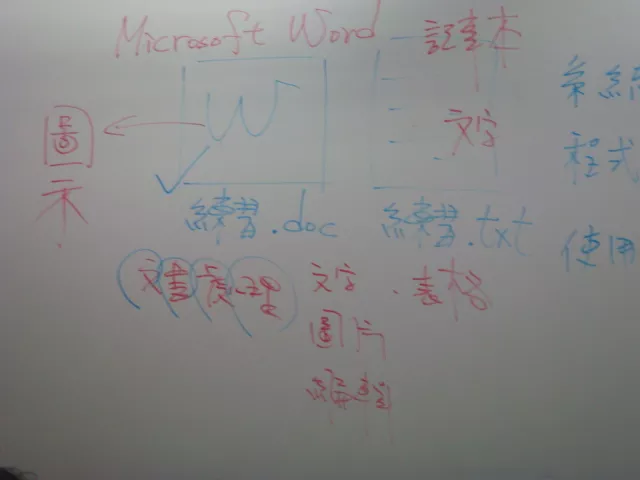 Microsoft Word 記事本
W 文字
圖示
繪書.doc 繪書.txt
程式
使用
文書處理 文字、表格
圖片
編輯